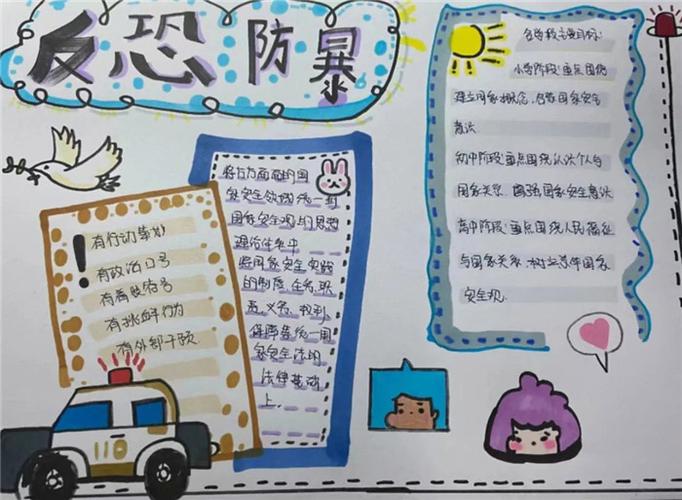 反恐防暴
有行动策划
有政治口号
有着装符号
有挑衅行为
有外部干预
将各方面面的国
家安全领域统一到
国家安全观与思想
理论体系中
将国家安全实践
的制度、任务、职
责、义务、权利、
保障等统一用
家安全法的
法律基础
上
各学段主要目标:
小学阶段:重点围绕
建立国家概念,启蒙国家安全
意识
初中阶段:重点围绕认识个人与
国家关系,增强国家安全意识
高中阶段:重点围绕人民福祉
与国家关系,树立总体国家
安全观.
110